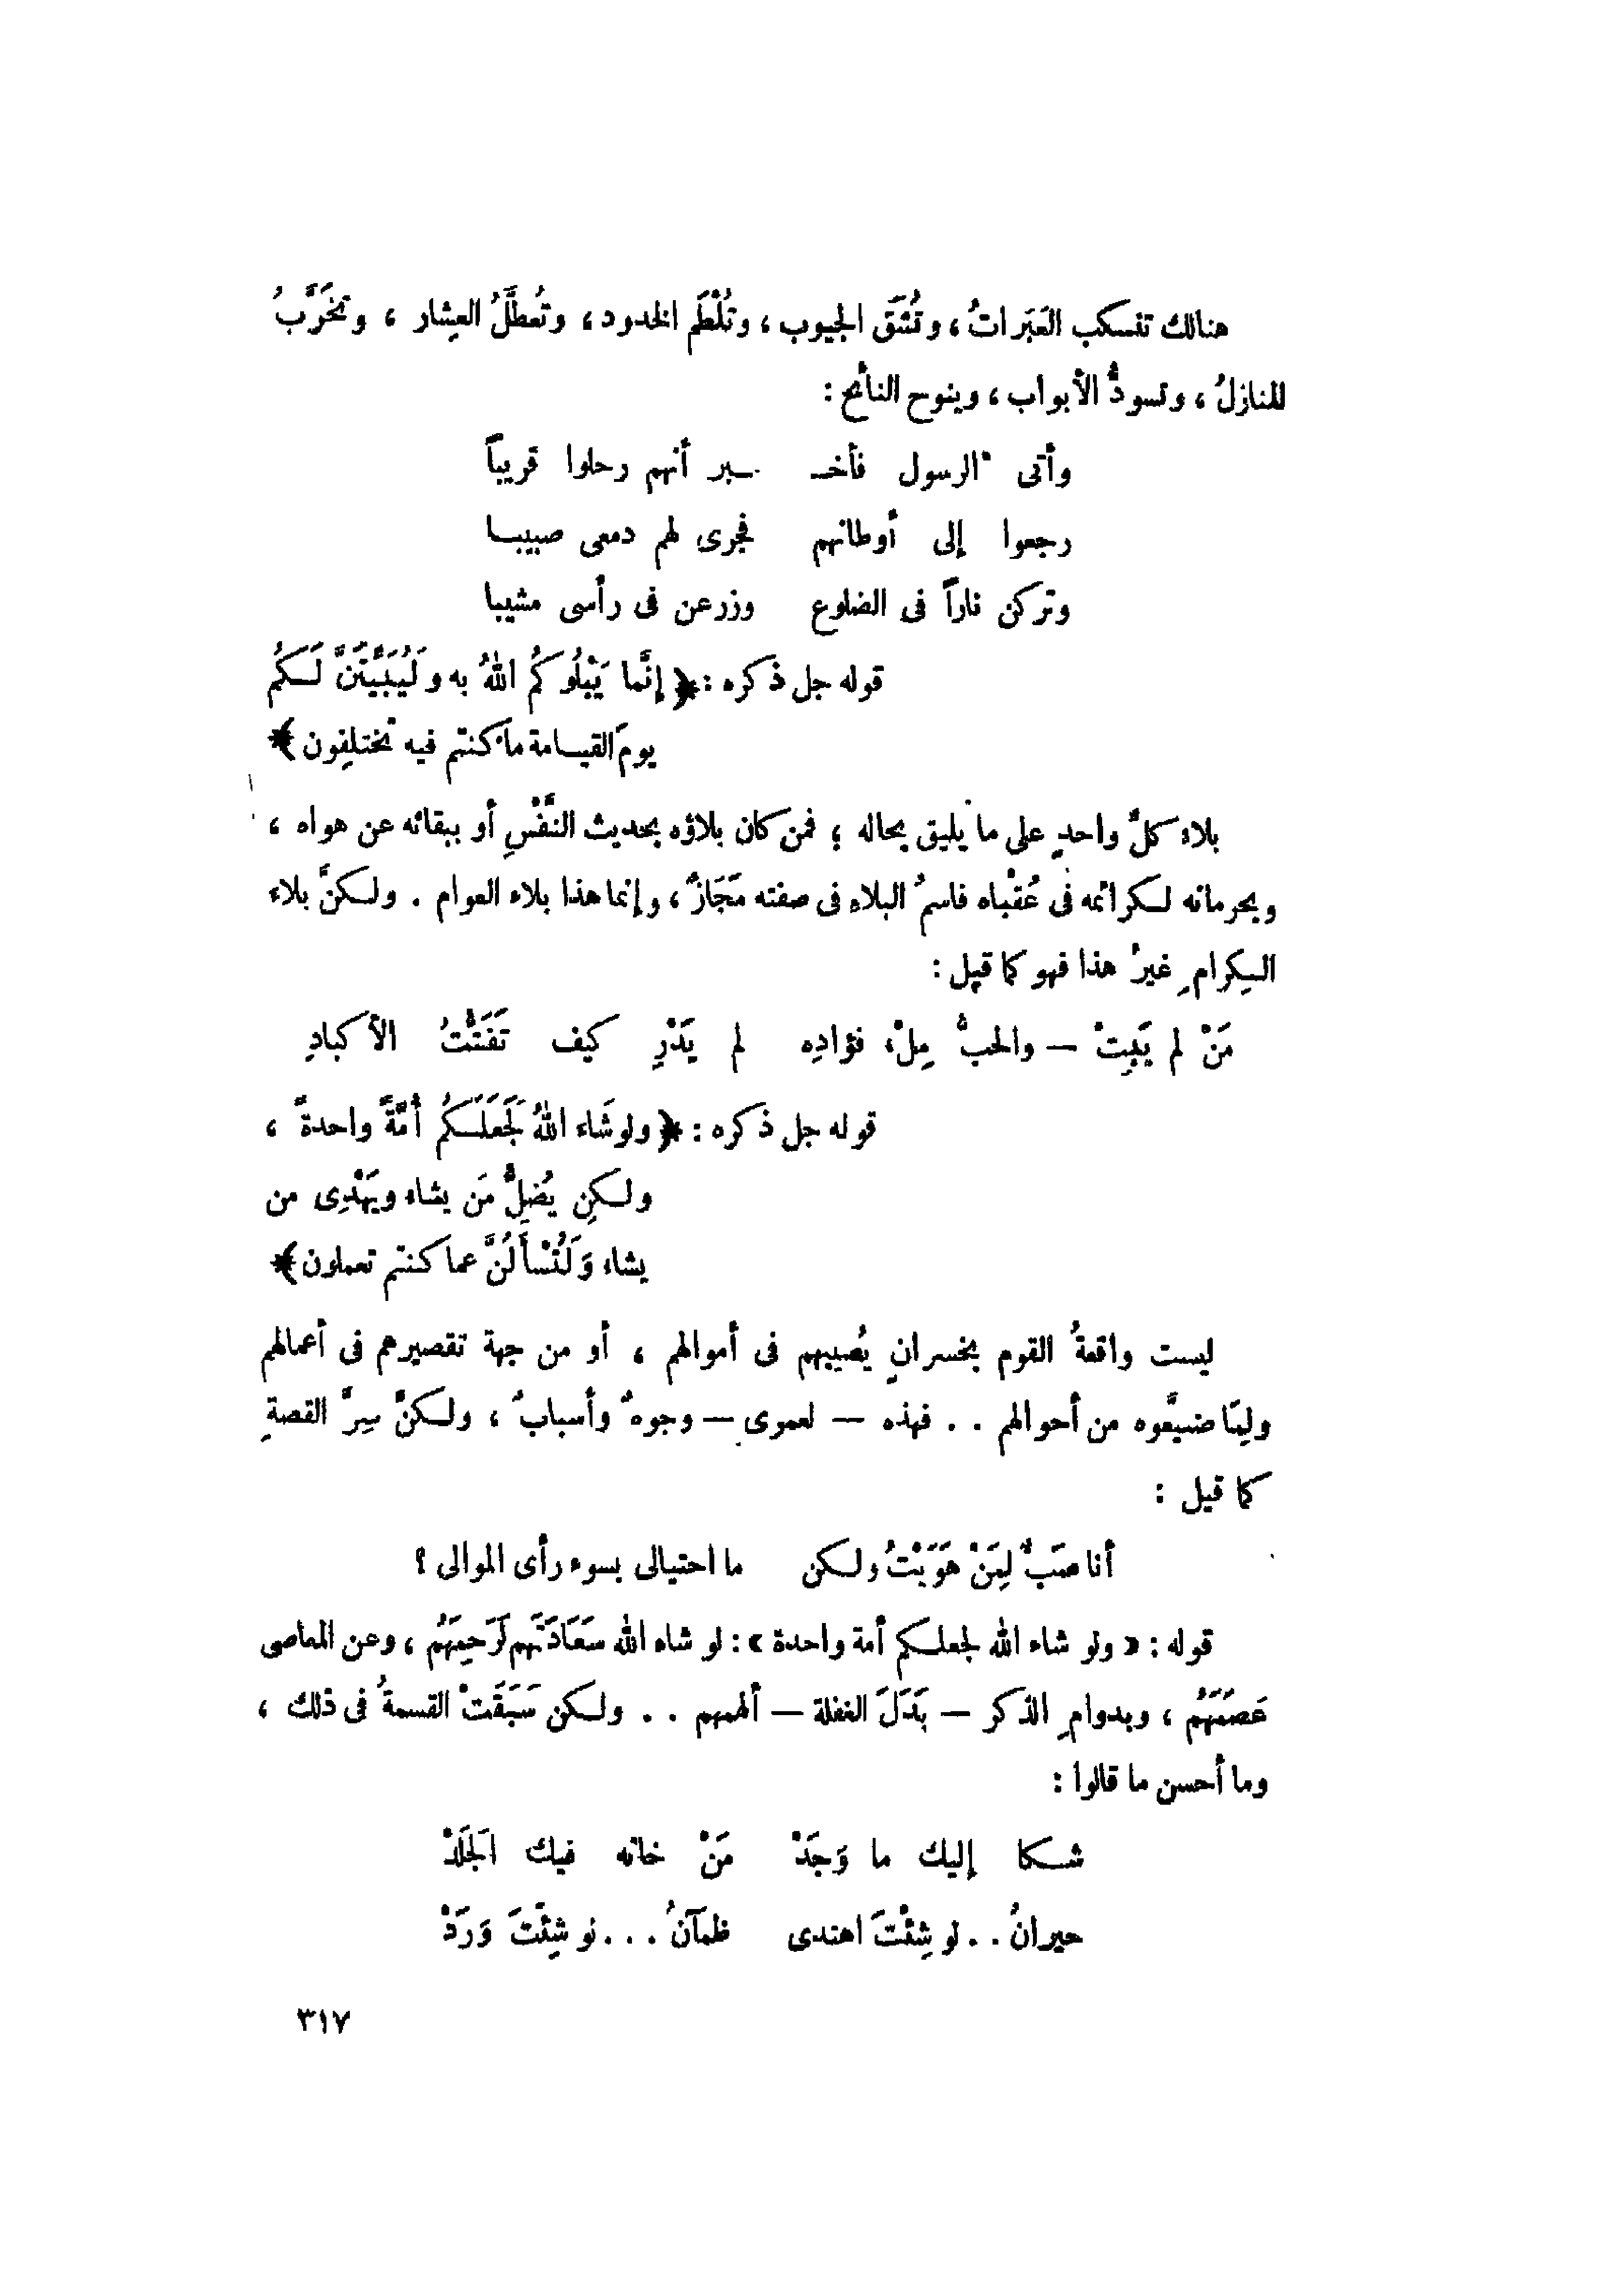 هنالك تنسكب العَبَراتُ، وتُشَق الجيوب، وتُلْطَم الخدود، وتُعطَّلُ العِشار، وتخَرَّبُ
المنازلُ، وتسودُّ الأبواب، وينوح النائح:
وأتى الرسول فأخـ ـبر أنهم رحلوا قريباً
رجعوا إلى أوطانهم فجرى لهم دمعى صبيبا
وتركن ناراً فى الضلوع وزرعن فى رأسى مشيبا
قوله جل ذكره: ﴿إنَّما يَبْلُوكُمُ اللهُ به ولَيُبَيِّنَنَّ لَكُم
يومَ القيامة ما كنتم فيه تختلِفون﴾
بلاء كلِّ واحدٍ على ما يليق بحاله؛ فمن كان بلاؤه بحديث النَّفْسِ أو ببقائه عن هواه،
وبحرمانه لكرائمه فى عُقْباه فاسمُ البلاءِ فى صفته مَجَازٌ، وإنما هذا بلاء العوام. ولكنَّ بلاء
الكِرامِ غيرُ هذا فهو كما قيل:
مَنْ لم يَبِتْ — والحبُّ مِلْءُ فؤادِه لم يَدْرِ كيف تَفَتُّتُ الأكبادِ
قوله جل ذكره: ﴿ولو شَاء اللهُ لَجَعَلَكُم أُمَّةً واحدةً،
ولكن يُضِلُّ مَن يشاء ويَهْدِى من
يشاء وَلَتُسْأَلُنَّ عما كنتم تعملون﴾
ليست واقعةُ القوم بخسرانٍ يُصيبهم فى أموالهم، أو من جهة تقصيرهم فى أعمالهم
ولِمَا ضيَّعوه من أحوالهم.. فهذه — لعمرى — وجوهٌ وأسبابٌ، ولكنَّ سِرَّ القصةِ
كما قيل:
أنا صَبٌّ لِمَنْ هَوَيْتُ ولكن ما احتيالى بسوء رأى الموالى؟
قوله: «ولو شاء الله لجعلكم أمة واحدة»: لو شاء الله سَعَادَتَهم لَرَحِمَهُم، وعن المعاصى
عَصَمَهُم، وبدوامِ الذكر — بَدَلَ الغفلة — ألهمهم.. ولكن سَبَقَتْ القسمةُ فى ذلك،
وما أحسن ما قالوا:
شكا إليك ما وَجَدْ مَنْ خانه فيك الجَلَدْ
حيرانُ.. لو شِئْتَ اهتدى ظمآنُ... لو شِئْتَ وَرَدْ
٣١٧